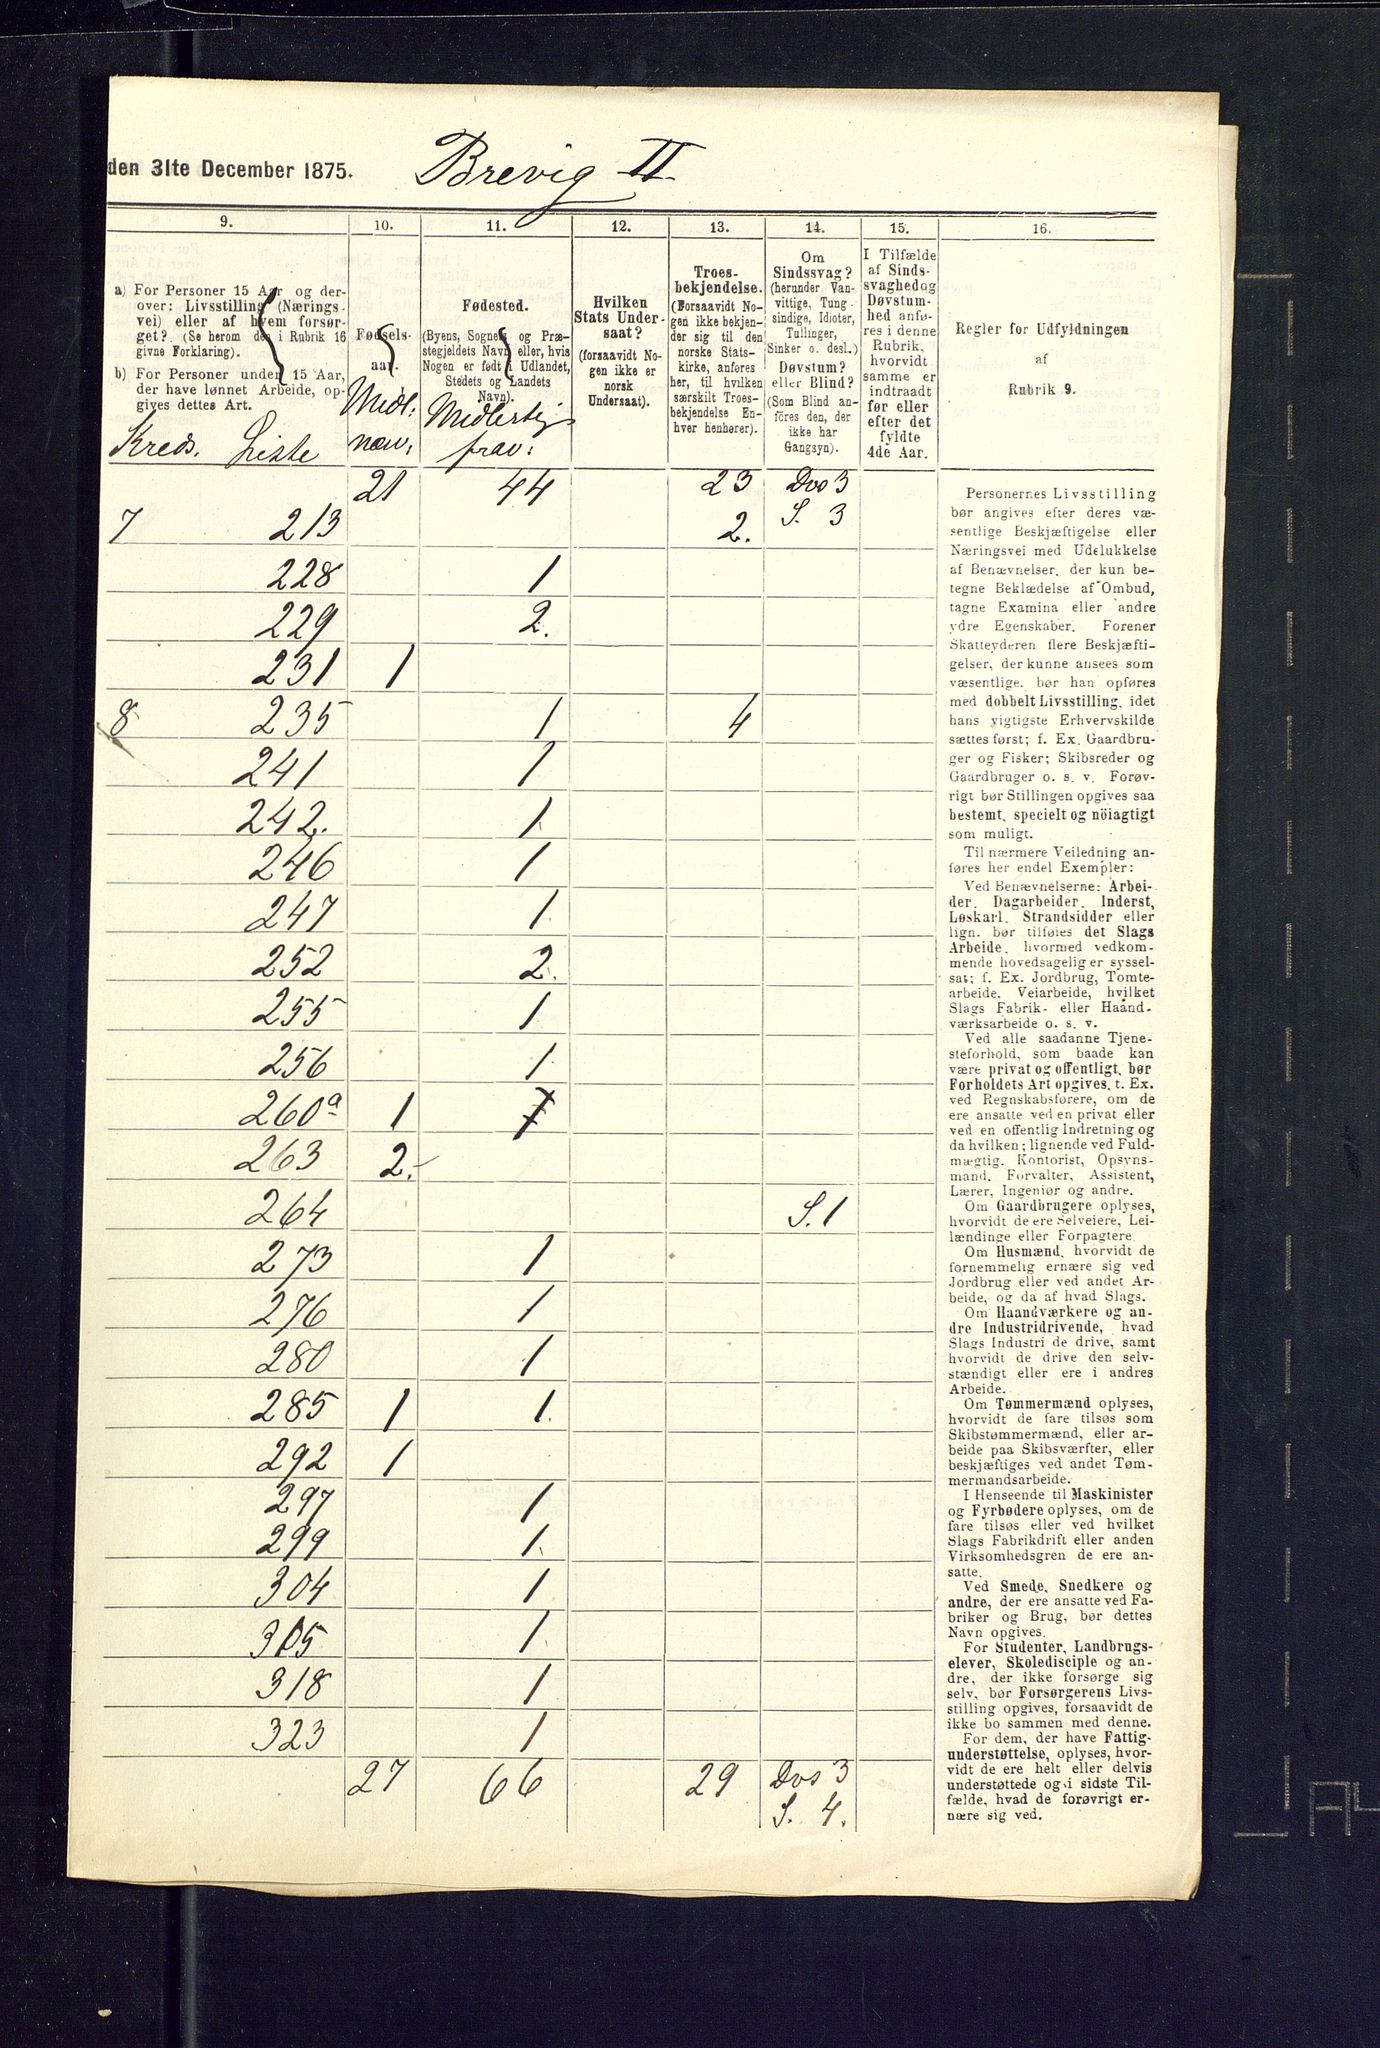 den 31te December 1875. Brevig II.
9. 10. 11. 12. 13. 14. 15. 16.
a) For Personer 15 Aar og der-
over: Livsstilling (Nærings-
vei) eller af hvem forsør-
get? (Se herom den i Rubrik 16
givne Forklaring).
b) For Personer under 15 Aar,
der have lønnet Arbeide, op-
gives dettes Art.
Kreds. Liste
Fødsels-
aar.
Midl:
nærv:
Fødested.
(Byens, Sognets og Præ-
stegjeldets Navn, eller, hvis
Nogen er født i Udlandet,
Stedets og Landets
Navn).
Midlertig
frav:
Hvilken
Stats Under-
saat?
(forsaavidt No-
gen ikke er
norsk
Undersaat).
Troes-
bekjendelse.
(Forsaavidt No-
gen ikke bekjen-
der sig til den
norske Stats-
kirke, anføres
her, til hvilken
særskilt Troes-
bekjendelse En-
hver henhører).
Om
Sindssvag?
(herunder Van-
vittige, Tung-
sindige, Idioter,
Tullinger,
Sinker o. desl.)
Døvstum?
eller Blind?
(Som Blind an-
føres den, der
ikke har
Gangsyn).
I Tilfælde
af Sinds-
svaghed og
Døvstum-
hed anfø-
res i denne
Rubrik,
hvorvidt
samme er
indtraadt
før eller
efter det
fyldte
4de Aar.
Regler for Udfyldningen
af
Rubrik 9.
21 44 23 Dvs 3
7 213 2. S. 3
228 1
229 2.
231 1
8 235 1 4
241 1
242. 1
246 1
247 1
252 2.
255 1
256 1
260a 1 1
263 2.
264 S. 1
273 1
276 1
280 1
285 1 1
292 1
297 1
299 1
304 1
305 1
318 1
323 1
27 66 29 Dvs 3
S. 4.
Personernes Livsstilling
bør angives efter deres væ-
sentlige Beskjæftigelse eller
Næringsvei med Udelukkelse
af Benævnelser, der kun be-
tegne Beklædelse af Ombud,
tagne Examina eller andre
ydre Egenskaber. Forener
Skatteyderen flere Beskjæfti-
gelser, der kunne ansees som
væsentlige, bør han opføres
med dobbelt Livsstilling, idet
hans vigtigste Erhvervskilde
sættes først; f. Ex. Gaardbru-
ger og Fisker; Skibsreder og
Gaardbruger o. s. v. Forøv-
rigt bør Stillingen opgives saa
bestemt, specielt og nöiagtigt
som muligt.
Til nærmere Veiledning an-
føres her endel Exempler:
Ved Benævnelserne: Arbei-
der, Dagarbeider, Inderst,
Løskarl, Strandsidder eller
lign. bør tilføies det Slags
Arbeide, hvormed vedkom-
mende hovedsagelig er syssel-
sat; f. Ex. Jordbrug, Tomte-
arbeide, Veiarbeide, hvilket
Slags Fabrik- eller Haand-
værksarbeide o. s. v.
Ved alle saadanne Tjene-
steforhold, som baade kan
være privat og offentligt, bør
Forholdets Art opgives, t. Ex.
ved Regnskabsførere, om de
ere ansatte ved en privat eller
ved en offentlig Indretning og
da hvilken; lignende ved Fuld-
mægtig, Kontorist, Opsyns-
mand, Forvalter, Assistent,
Lærer, Ingeniør og andre.
Om Gaardbrugere oplyses,
hvorvidt de ere Selveiere, Lei-
lændinge eller Forpagtere.
Om Husmænd, hvorvidt de
fornemmelig ernære sig ved
Jordbrug eller ved andet Ar-
beide, og da af hvad Slags.
Om Haandværkere og an-
dre Industridrivende, hvad
Slags Industri de drive, samt
hvorvidt de drive den selv-
stændigt eller ere i andres
Arbeide.
Om Tømmermænd oplyses,
hvorvidt de fare tilsøs som
Skibstømmermænd, eller ar-
beide paa Skibsværfter, eller
beskjæftiges ved andet Tøm-
mermandsarbeide.
I Henseende til Maskinister
og Fyrbødere oplyses, om de
fare tilsøs eller ved hvilket
Slags Fabrikdrift eller anden
Virksomhedsgren de ere an-
satte.
Ved Smede, Snedkere og
andre, der ere ansatte ved Fa-
briker og Brug, bør dettes
Navn opgives.
For Studenter, Landbrugs-
elever, Skoledisciple og an-
dre, der ikke forsørge sig
selv, bør Forsørgerens Livs-
stilling opgives, forsaavidt de
ikke bo sammen med denne.
For dem, der have Fattig-
understøttelse, oplyses, hvor-
vidt de ere helt eller delvis
understøttede og i sidste Til-
fælde, hvad de forøvrigt er-
nære sig ved.